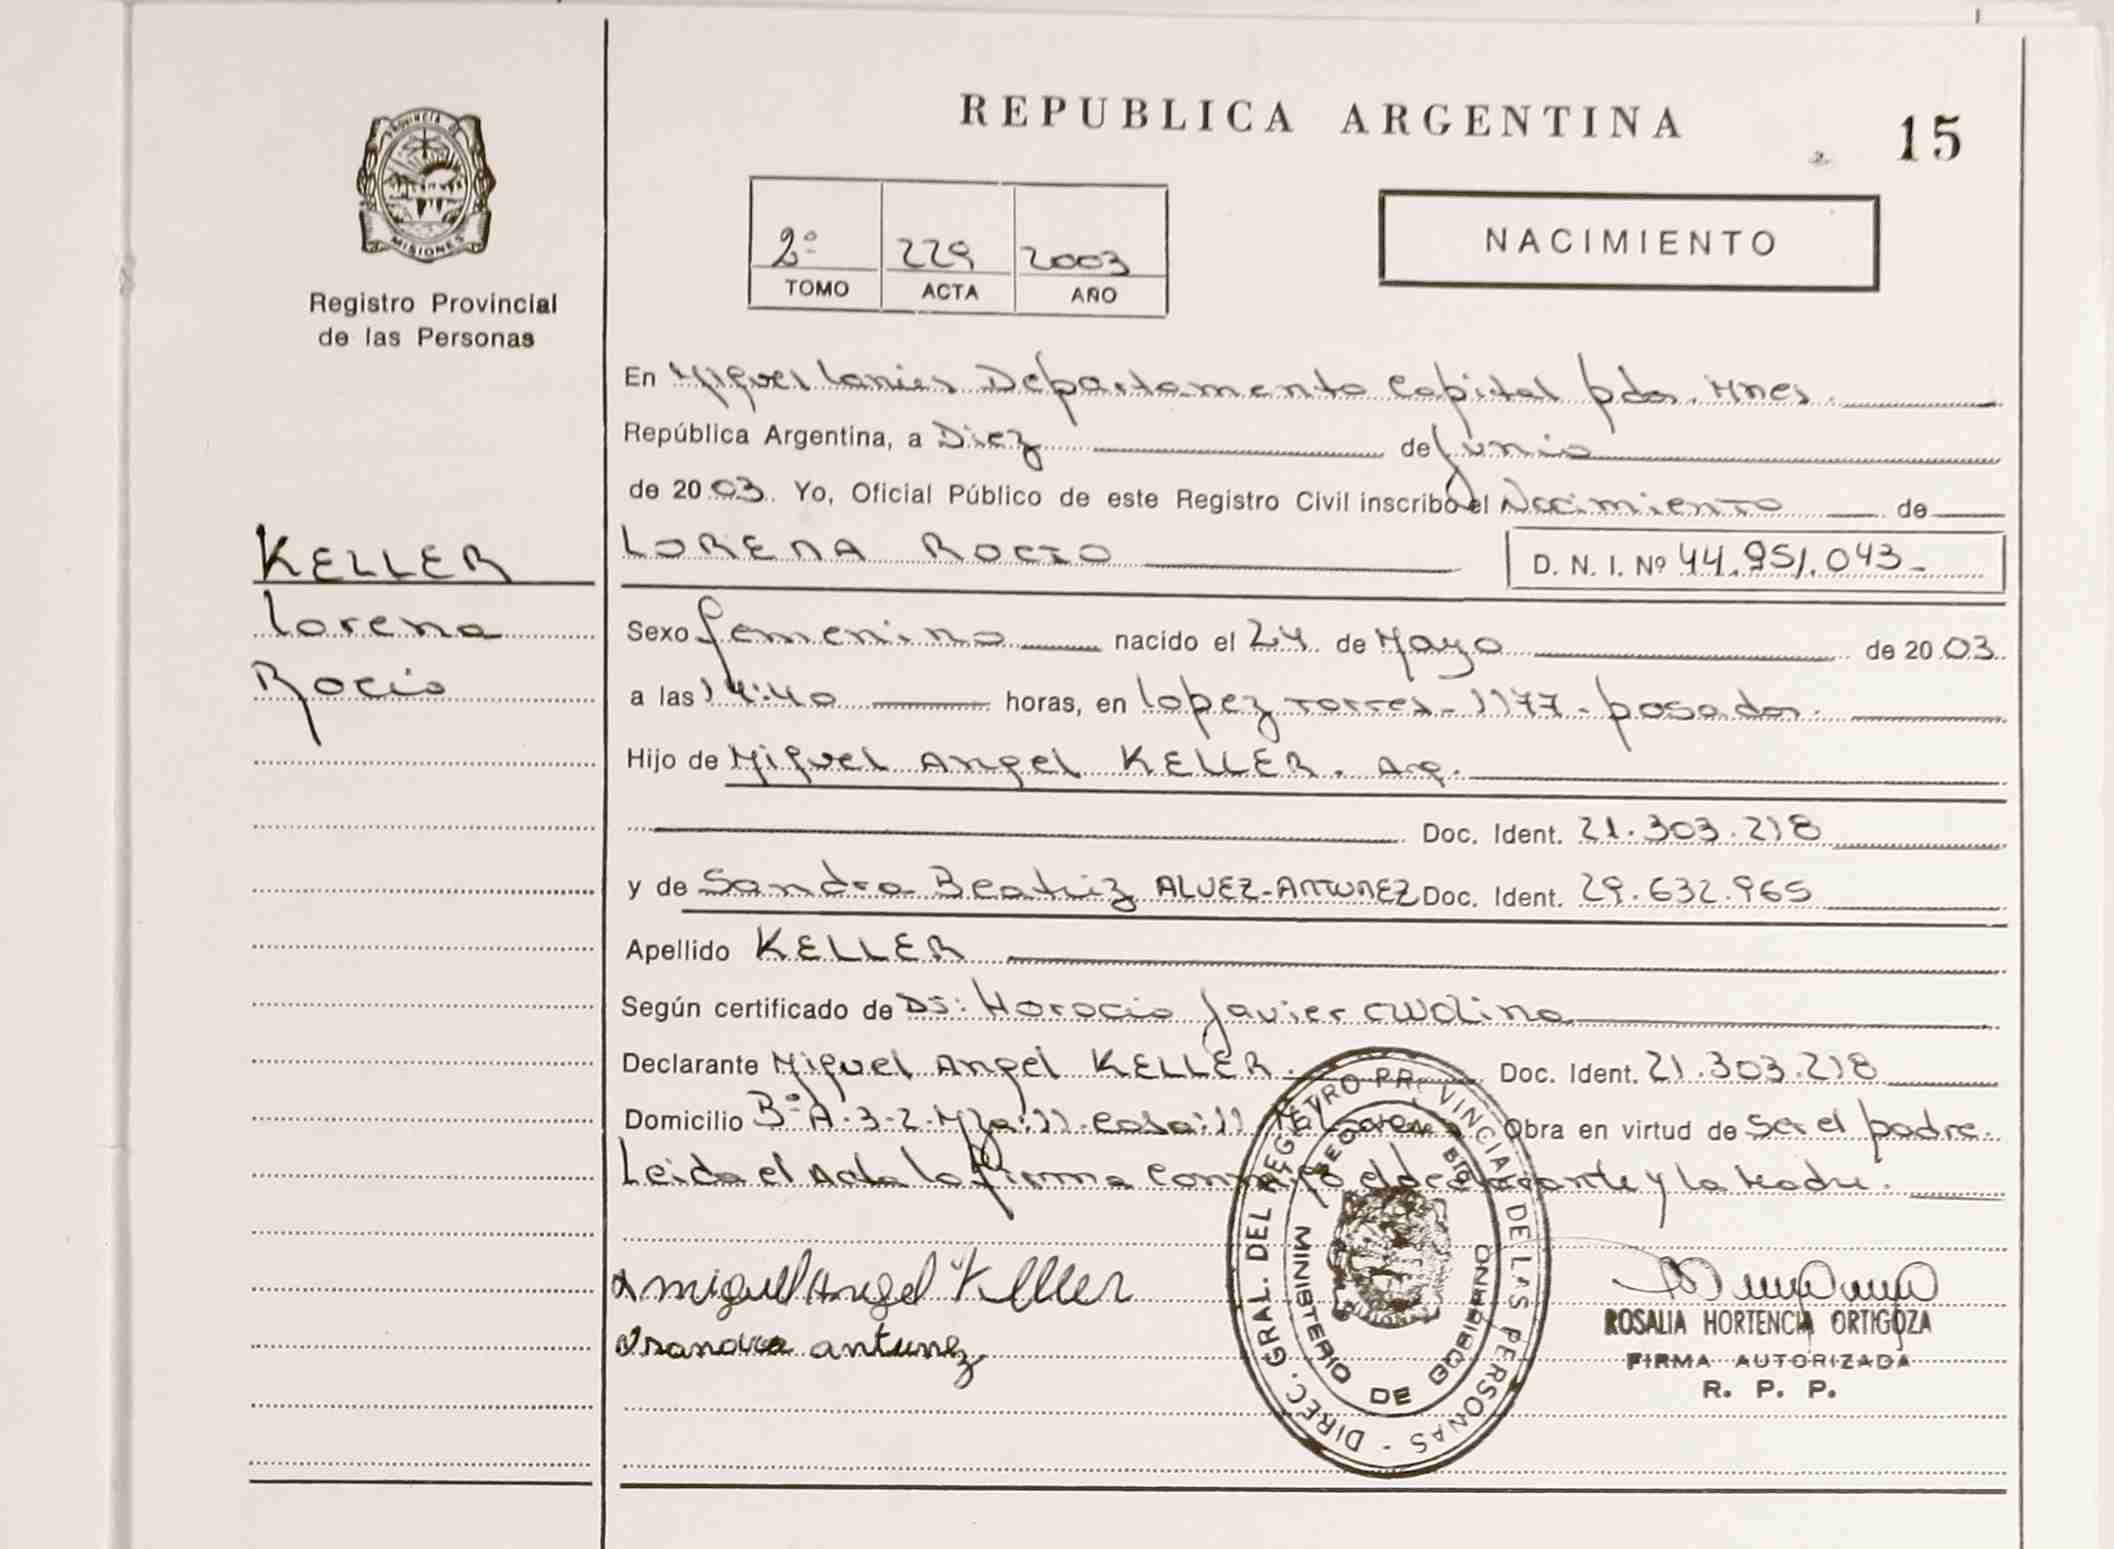 PROVINCIA DE
MISIONES
Registro Provincial
de las Personas
REPUBLICA ARGENTINA
15
2º 229 2003
TOMO ACTA AÑO
NACIMIENTO
En Miguel Lanús Departamento Capital pcia. Mnes.
República Argentina, a Diez de Junio
de 2003. Yo, Oficial Público de este Registro Civil inscribo el Nacimiento de
KELLER
Lorena
Rocio
LORENA ROCIO
D. N. I. Nº 44.951.043-
Sexo femenino nacido el 24 de Mayo de 2003.
a las 14:40 horas, en Lopez Torres-1177-posadas.
Hijo de Miguel Angel KELLER. Arg.
Doc. Ident. 21.303.218
y de Sandra Beatriz ALVEZ-ANTUNEZ Doc. Ident. 29.632.965
Apellido KELLER
Según certificado de Ds: Horacio Javier
Declarante Miguel Angel KELLER. Doc. Ident. 21.303.218
Domicilio Bº A-3-2-Mza:11-Casa:11 Obra en virtud de ser el padre.
Leida el Acta la firma conmigo el declarante y la Madre.
Miguel Angel Keller
Sandra antunez
DIREC. GRAL. DEL REGISTRO PROVINCIAL DE LAS PERSONAS -
MINISTERIO DE GOBIERNO
ROSALIA HORTENCIA ORTIGOZA
FIRMA AUTORIZADA
R. P. P.